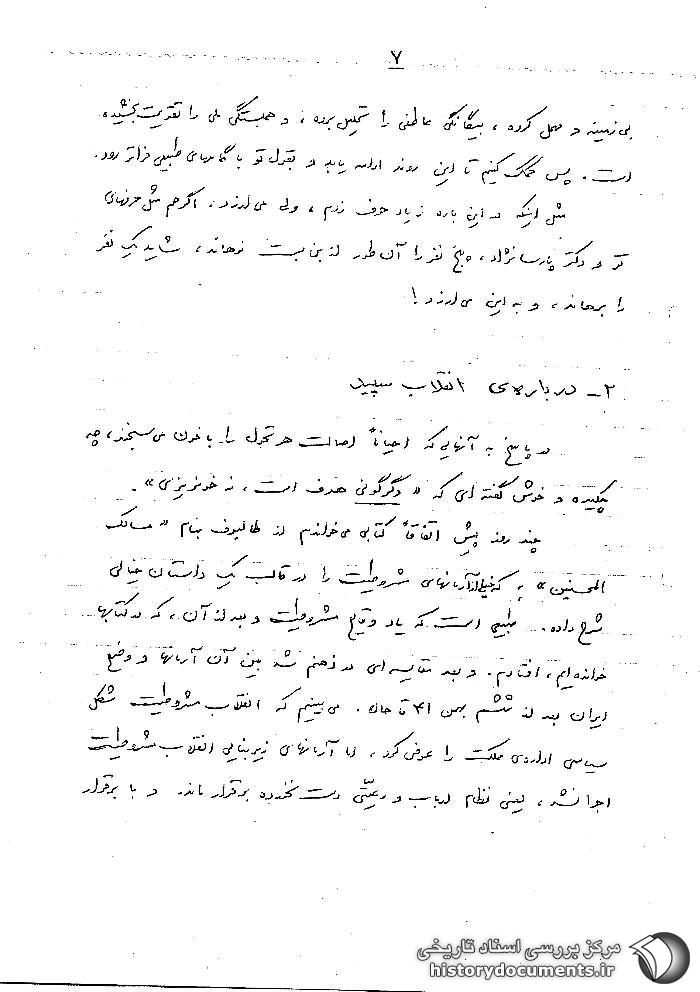 ۷
بی‌زمینه و مهمل کرده، بیگانگی عاطفی را تحلیل برده، و همبستگی ملی را تقویت بخشیده
است. پس کمک کنیم تا این روند ادامه یابد و بقول تو با گامهای طبیعی فراتر رود.
مثل اینکه در این باره زیاد حرف زدم، ولی می‌ارزد. اگر هم مثل حرفهای
تو و دکتر پارسانژاد، پنج نفر را آن طور از بن بست نرهاند، شاید یک نفر
را برهاند، و به این می‌ارزد!
۲- درباره‌ی انقلاب سپید
در پاسخ به آنهایی که احیاناً اصالت هر تحول را با خون می‌سنجند، چه
چکیده و خوش گفته‌ای که «دگرگونی هدف است، نه خونریزی».
چند روز پیش اتفاقاً کتابی می‌خواندم از طالبوف بنام «مسالک
المحسنین» که خیلی از آرمانهای مشروطیت را در قالب یک داستان خیالی
شرح داده. طبیعی است که یاد وقایع مشروطیت و بعد از آن، که در کتابها
خوانده‌ایم، افتادم. و بعد مقایسه‌ای در ذهنم شد بین آن آرمانها و وضع
ایران بعد از ششم بهمن ۴۱ تا حال. می‌بینیم که انقلاب مشروطیت شکل
سیاسی اداره‌ی مملکت را عوض کرد، اما آرمانهای زیربنایی انقلاب مشروطیت
اجرا نشد، یعنی نظام ارباب و رعیتی دست نخورده برقرار ماند. و با برقرار
مرکز بررسی اسناد تاریخی
historydocuments.ir